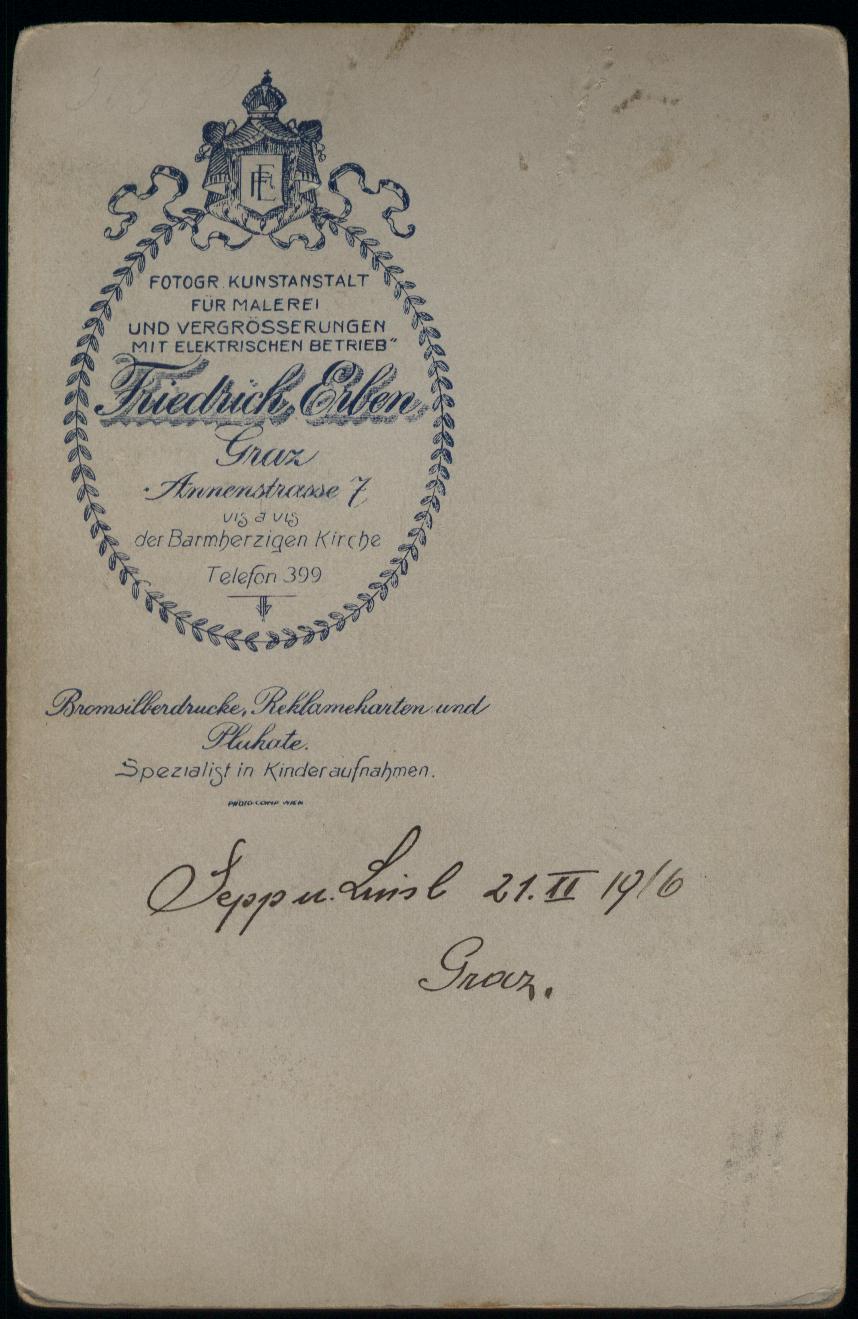 FOTOGR. KUNSTANSTALT
FÜR MALEREI
UND VERGRÖSSERUNGEN
MIT ELEKTRISCHEN BETRIEB"
Friedrich Erben
Graz
Annenstrasse 7
vis à vis
der Barmherzigen Kirche
Telefon 399
Bromsilberdrucke, Reklamekarten und
Plakate.
Spezialist in Kinderaufnahmen.
PHOTO-COMP WIEN
Sepp u. Luisl 21. II 1916
Graz.